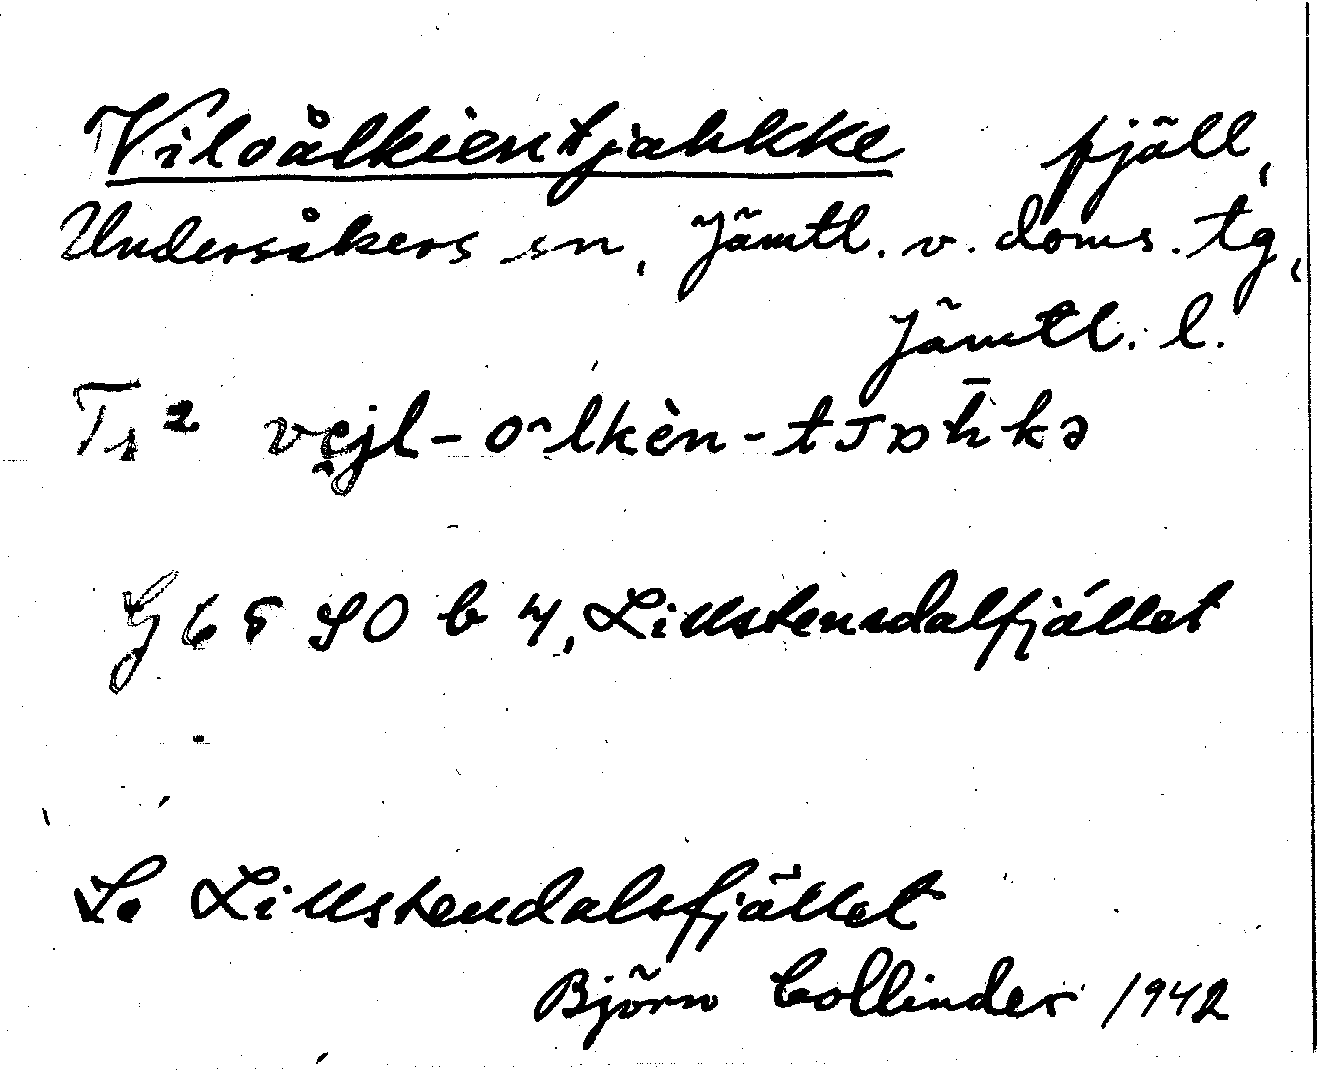 Viloålkientjahkke fjäll,
Undersåkers sn, Jämtl. v. doms. tg,
Jämtl. l.
vejl-o͂lkèn-tᴊɒh̄kə
G 65 SO b 4, Lillstensdalfjället
Se Lillstendalsfjället
Björn Collinder 1942